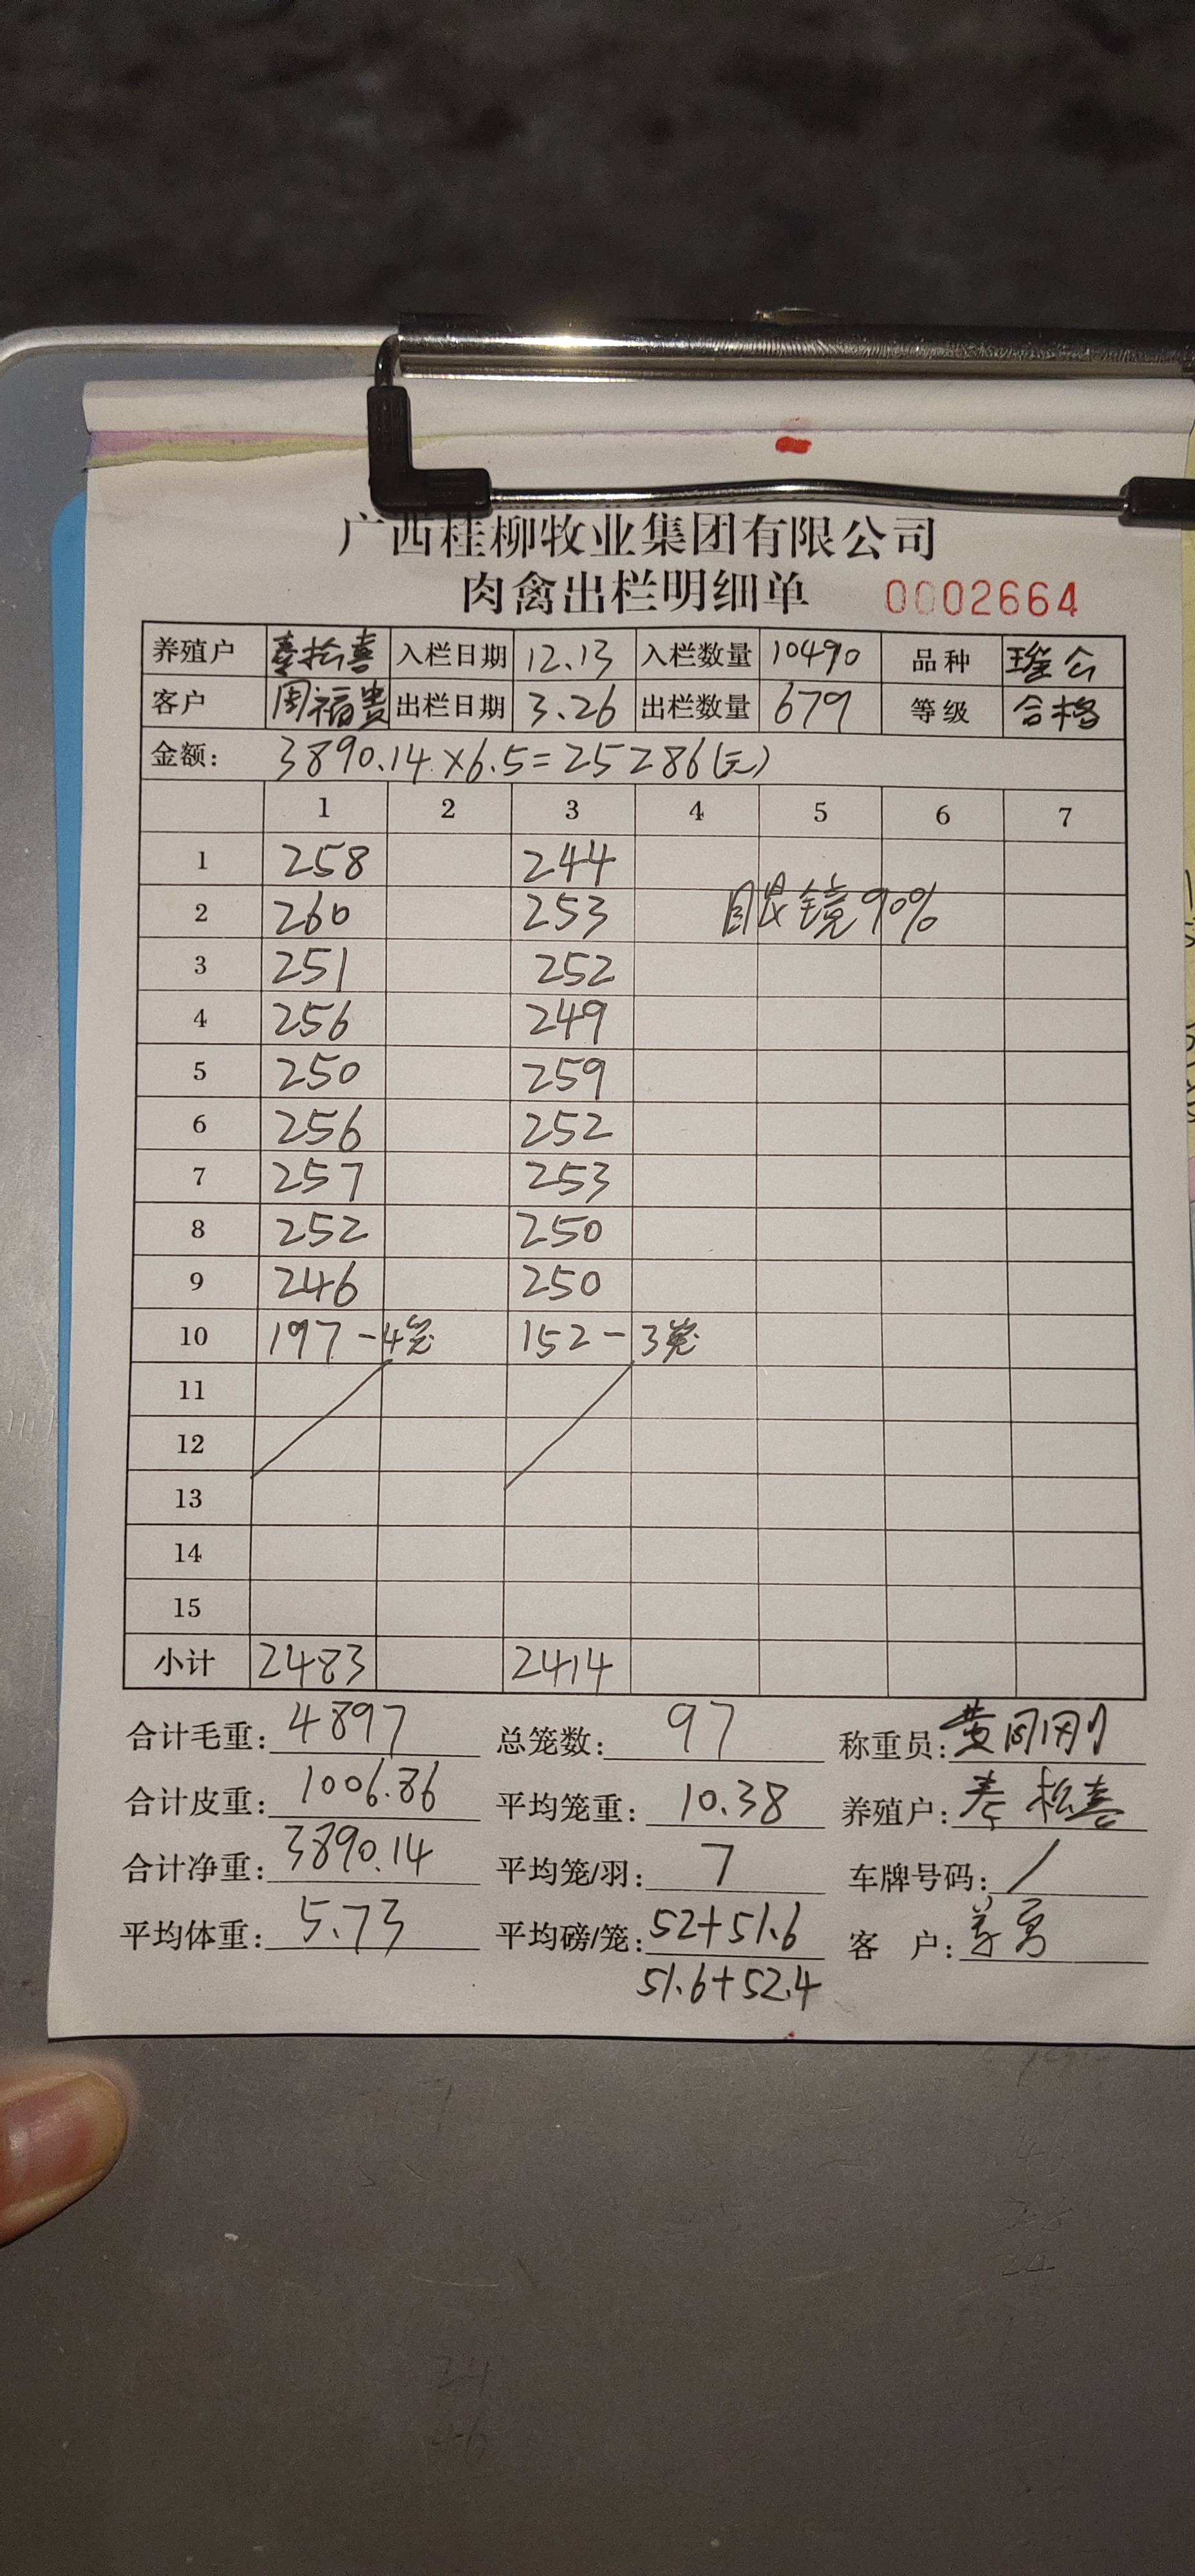 广西桂柳牧业集团有限公司
肉禽出栏明细单 0002664
养殖户 秦松喜 入栏日期 12.13 入栏数量 10490 品种 瑶公
客户 周福贵 出栏日期 3.26 出栏数量 679 等级 合格
金额: 3890.14×6.5=25286(元)
1 2 3 4 5 6 7
1 258 244
2 260 253 眼镜90%
3 251 252
4 256 249
5 250 259
6 256 252
7 257 253
8 252 250
9 246 250
10 197-4笼 152-3笼
11
12
13
14
15
小计 2483 2414
合计毛重: 4897 总笼数: 97 称重员: 黄刚刚
合计皮重: 1006.86 平均笼重: 10.38 养殖户: 秦松喜
合计净重: 3890.14 平均笼/羽: 7 车牌号码: /
平均体重: 5.73 平均磅/笼: 52+51.6 客 户:
51.6+52.4